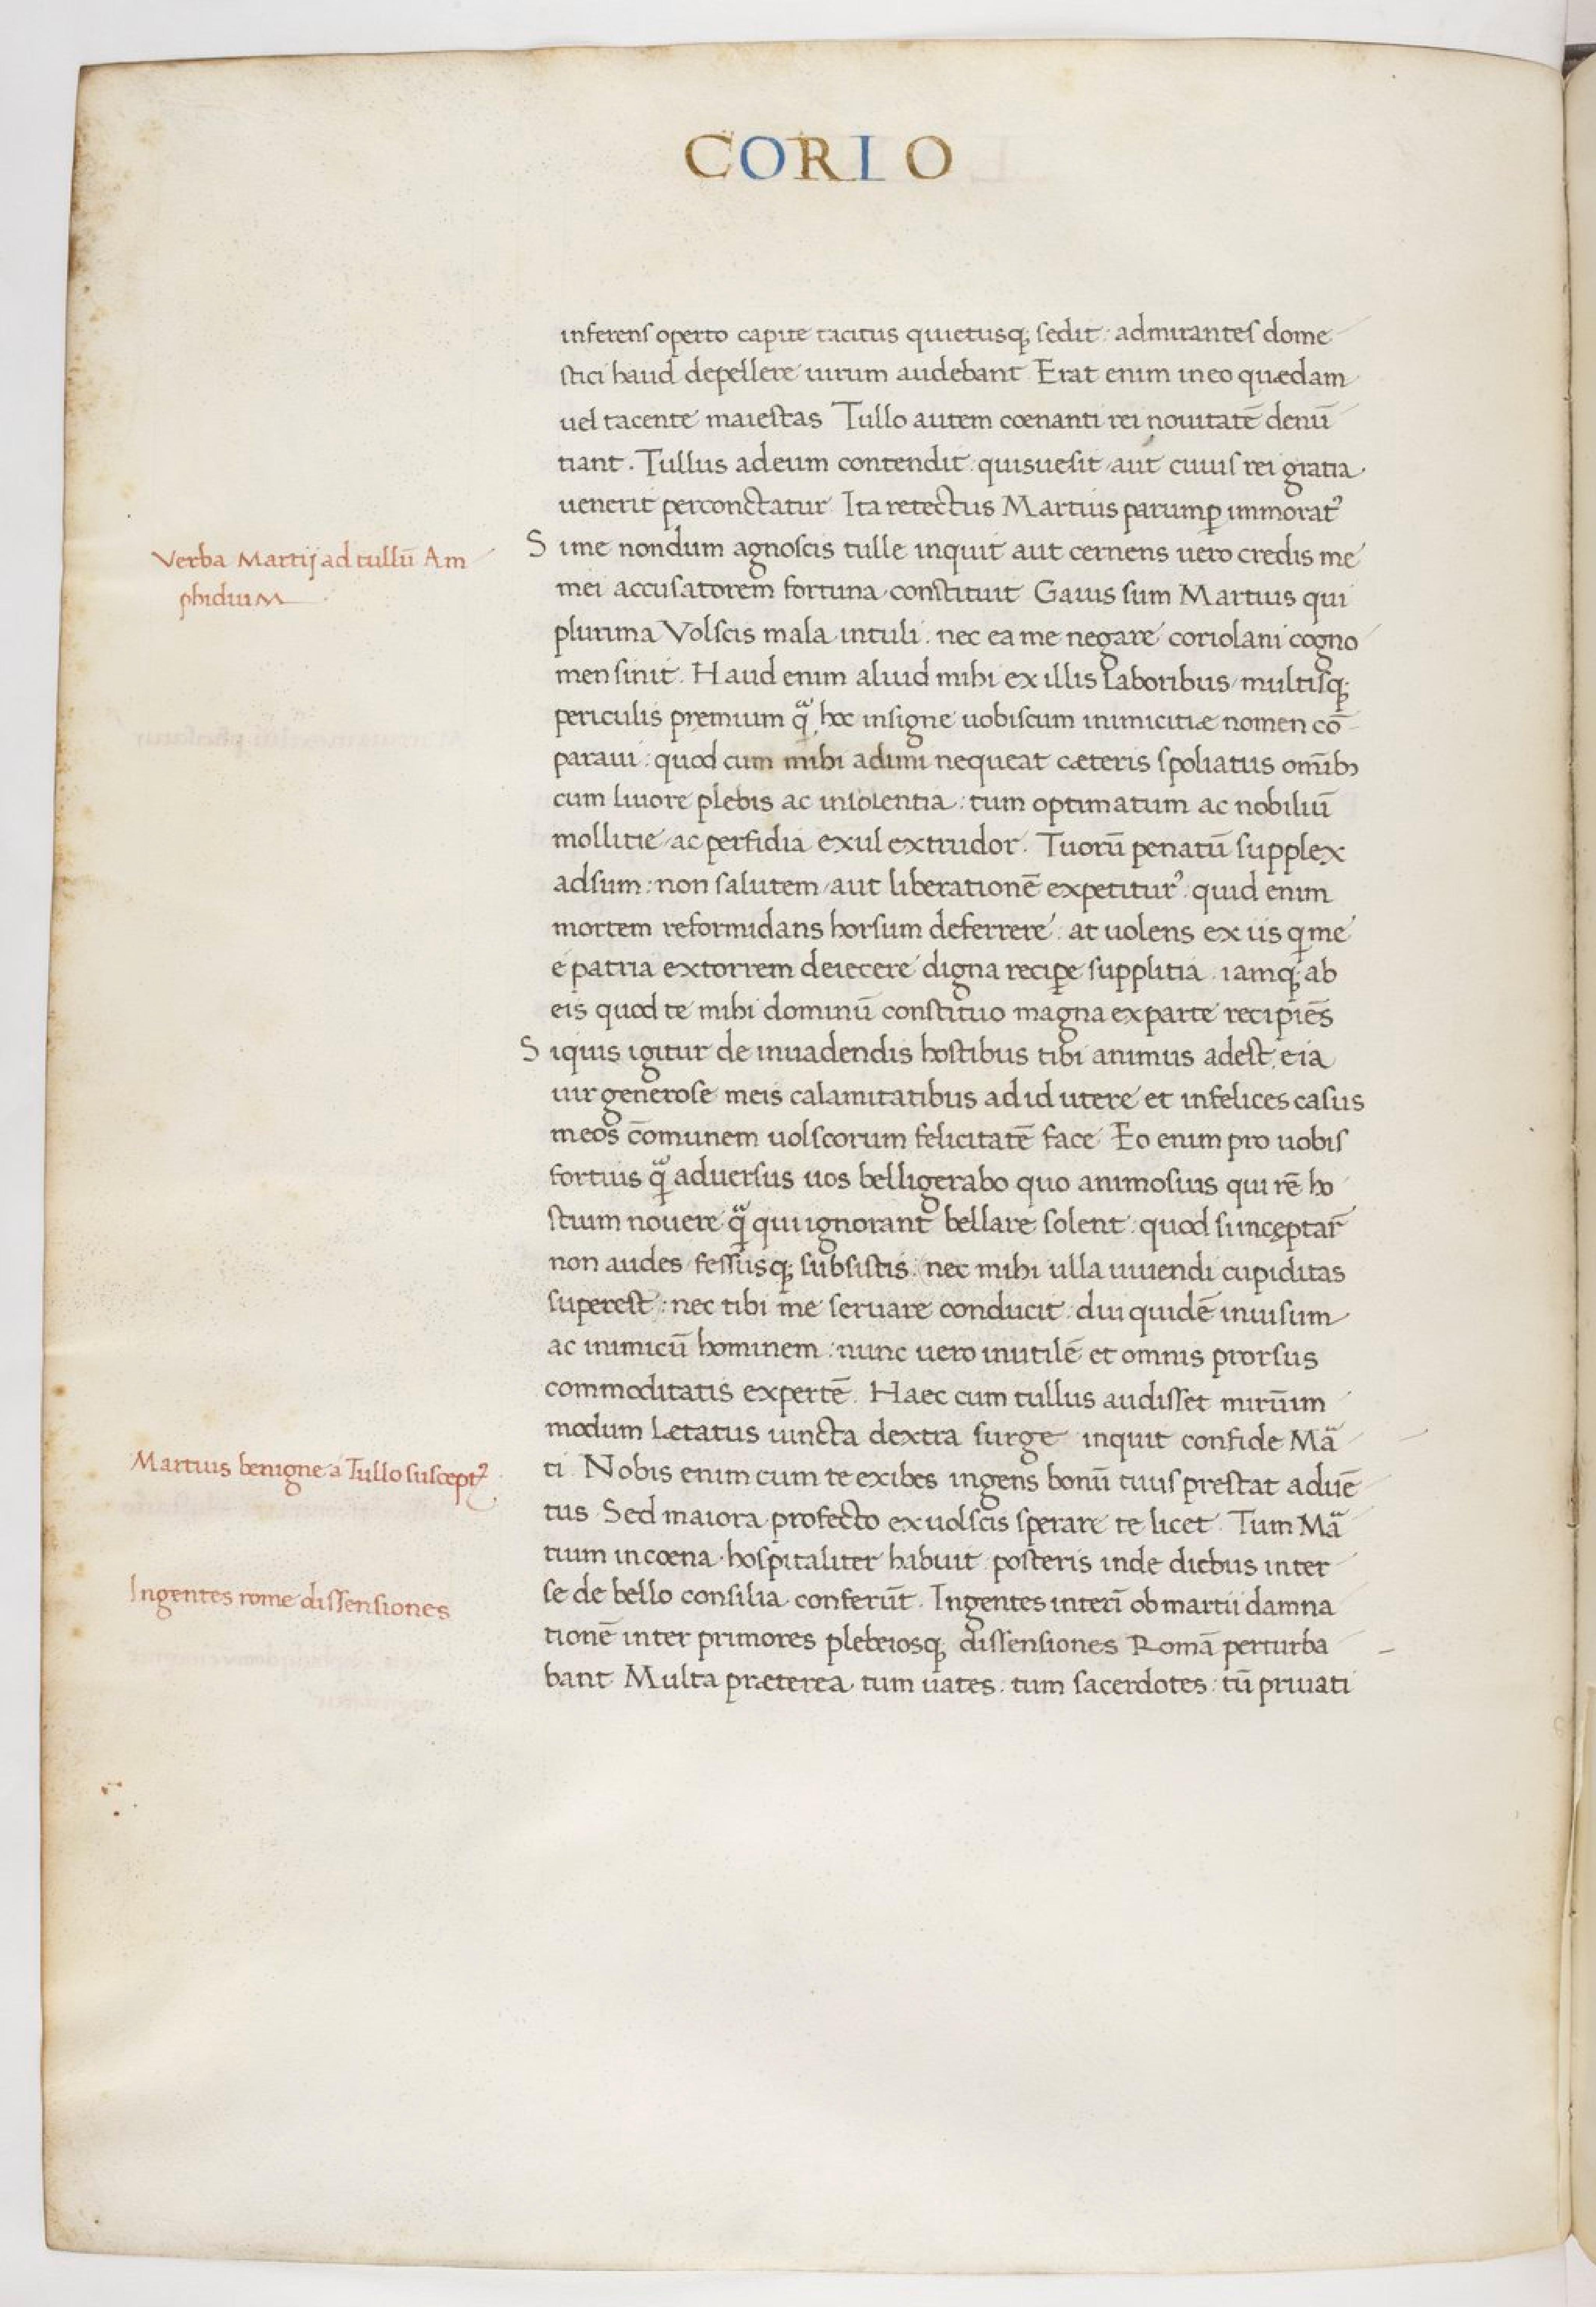 CORIO
inferens operto capite tacitus quietusq; sedit: admirantes dome
stici haud depellere uirum audebant Erat enim in eo quædam
uel tacente maiestas Tullo autem cœnanti rei nouitatē denū
tiant. Tullus ad eum contendit: quisue sit aut cuius rei gratia
uenerit perconctatur Ita retectus Martius parumꝑ immorat᷒
Verba Martij ad tullū Am
phidium
Si me nondum agnoscis tulle inquit aut cernens uero credis me
mei accusatorem fortuna constituit Gaius sum Martius qui
plurima Volscis mala intuli: nec ea me negare coriolani cogno
men sinit. Haud enim aliud mihi ex illis laboribus multisq;
periculis premium qᷓ hoc insigne uobiscum inimicitiæ nomen cō
paraui: quod cum mihi adimi nequeat cæteris spoliatus omībꝫ
cum liuore plebis ac insolentia: tum optimatum ac nobiliū
mollitie ac perfidia exul extrudor. Tuorū penatū supplex
adsum: non salutem aut liberationē expetitur᷒: quid enim
mortem reformidans horsum deferrere: at uolens ex iis qi me
e patria extorrem deiecere digna reciꝑe supplitia iamq; ab
eis quod te mihi dominū constituo magna ex parte recipiēs
Si quis igitur de inuadendis hostibus tibi animus adest, eia
uir generose meis calamitatibus ad id utere et infelices casus
meos cōmunem uolscorum felicitatē face Eo enim pro uobis
fortius qᷓ aduersus uos belligerabo quo animosius qui rē ho
stium nouere qᷓ qui ignorant bellare solent: quod si inceptar̄
non audes fessusq; subsistis: nec mihi ulla uiuendi cupiditas
superest: nec tibi me seruare conducit: diu quidē inuisum
ac inimicū hominem: nunc uero inutilē et omnis prorsus
commoditatis expertē. Haec cum tullus audisset mirūim
modum letatus iuncta dextra surge inquit confide Mᷓa
Martius benigne a Tullo suscept᷒
ti Nobis enim cum te exibes ingens bonū tuus prestat aduē
tus Sed maiora profecto ex uolscis sperare te licet Tum Mᷓa
tium in cœna hospitaliter habuit posteris inde diebus inter
Ingentes rome dissensiones
se de bello consilia conferūt. Ingentes interī ob martii damna
tionē inter primores plebeiosq; dissensiones Romā perturba
bant Multa præterea tum uates: tum sacerdotes: tū priuati